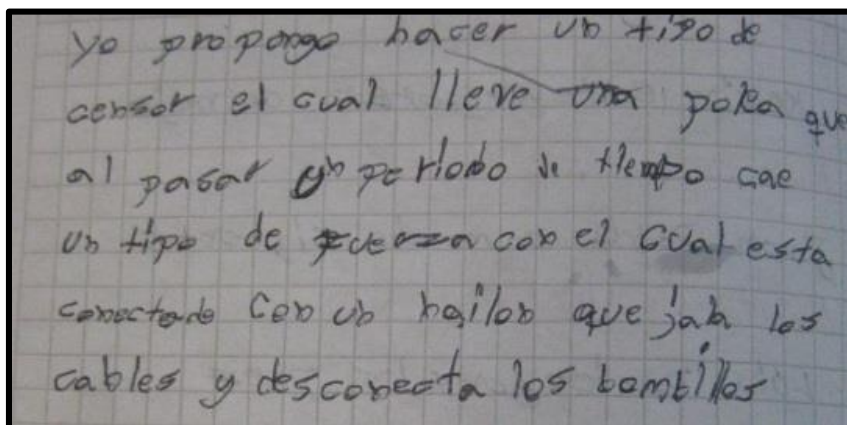 yo propongo hacer un tipo de
censor el cual lleve una polea que
al pasar un periodo de tiempo cae
un tipo de fuerza con el cual esta
conectado con un nailon que jala los
cables y desconecta los bombillos